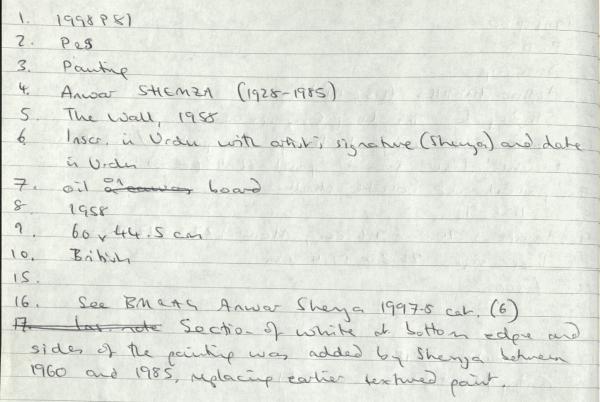 1. 1998P81
2. P&S
3. Painting
4. Anwar SHEMZA (1928-1985)
5. The Wall, 1958
6. Inscr. in Urdu with artist's signature (Shemza) and date
in Urdu
7. oil on canvas board
8. 1958
9. 60 x 44.5 cm
10. British
15.
16. See BM&AG Anwar Shemza 1997-8 cat. (6)
17. last note Section of white at bottom edge and
sides of the painting was added by Shemza between
1960 and 1985, replacing earlier textured paint.